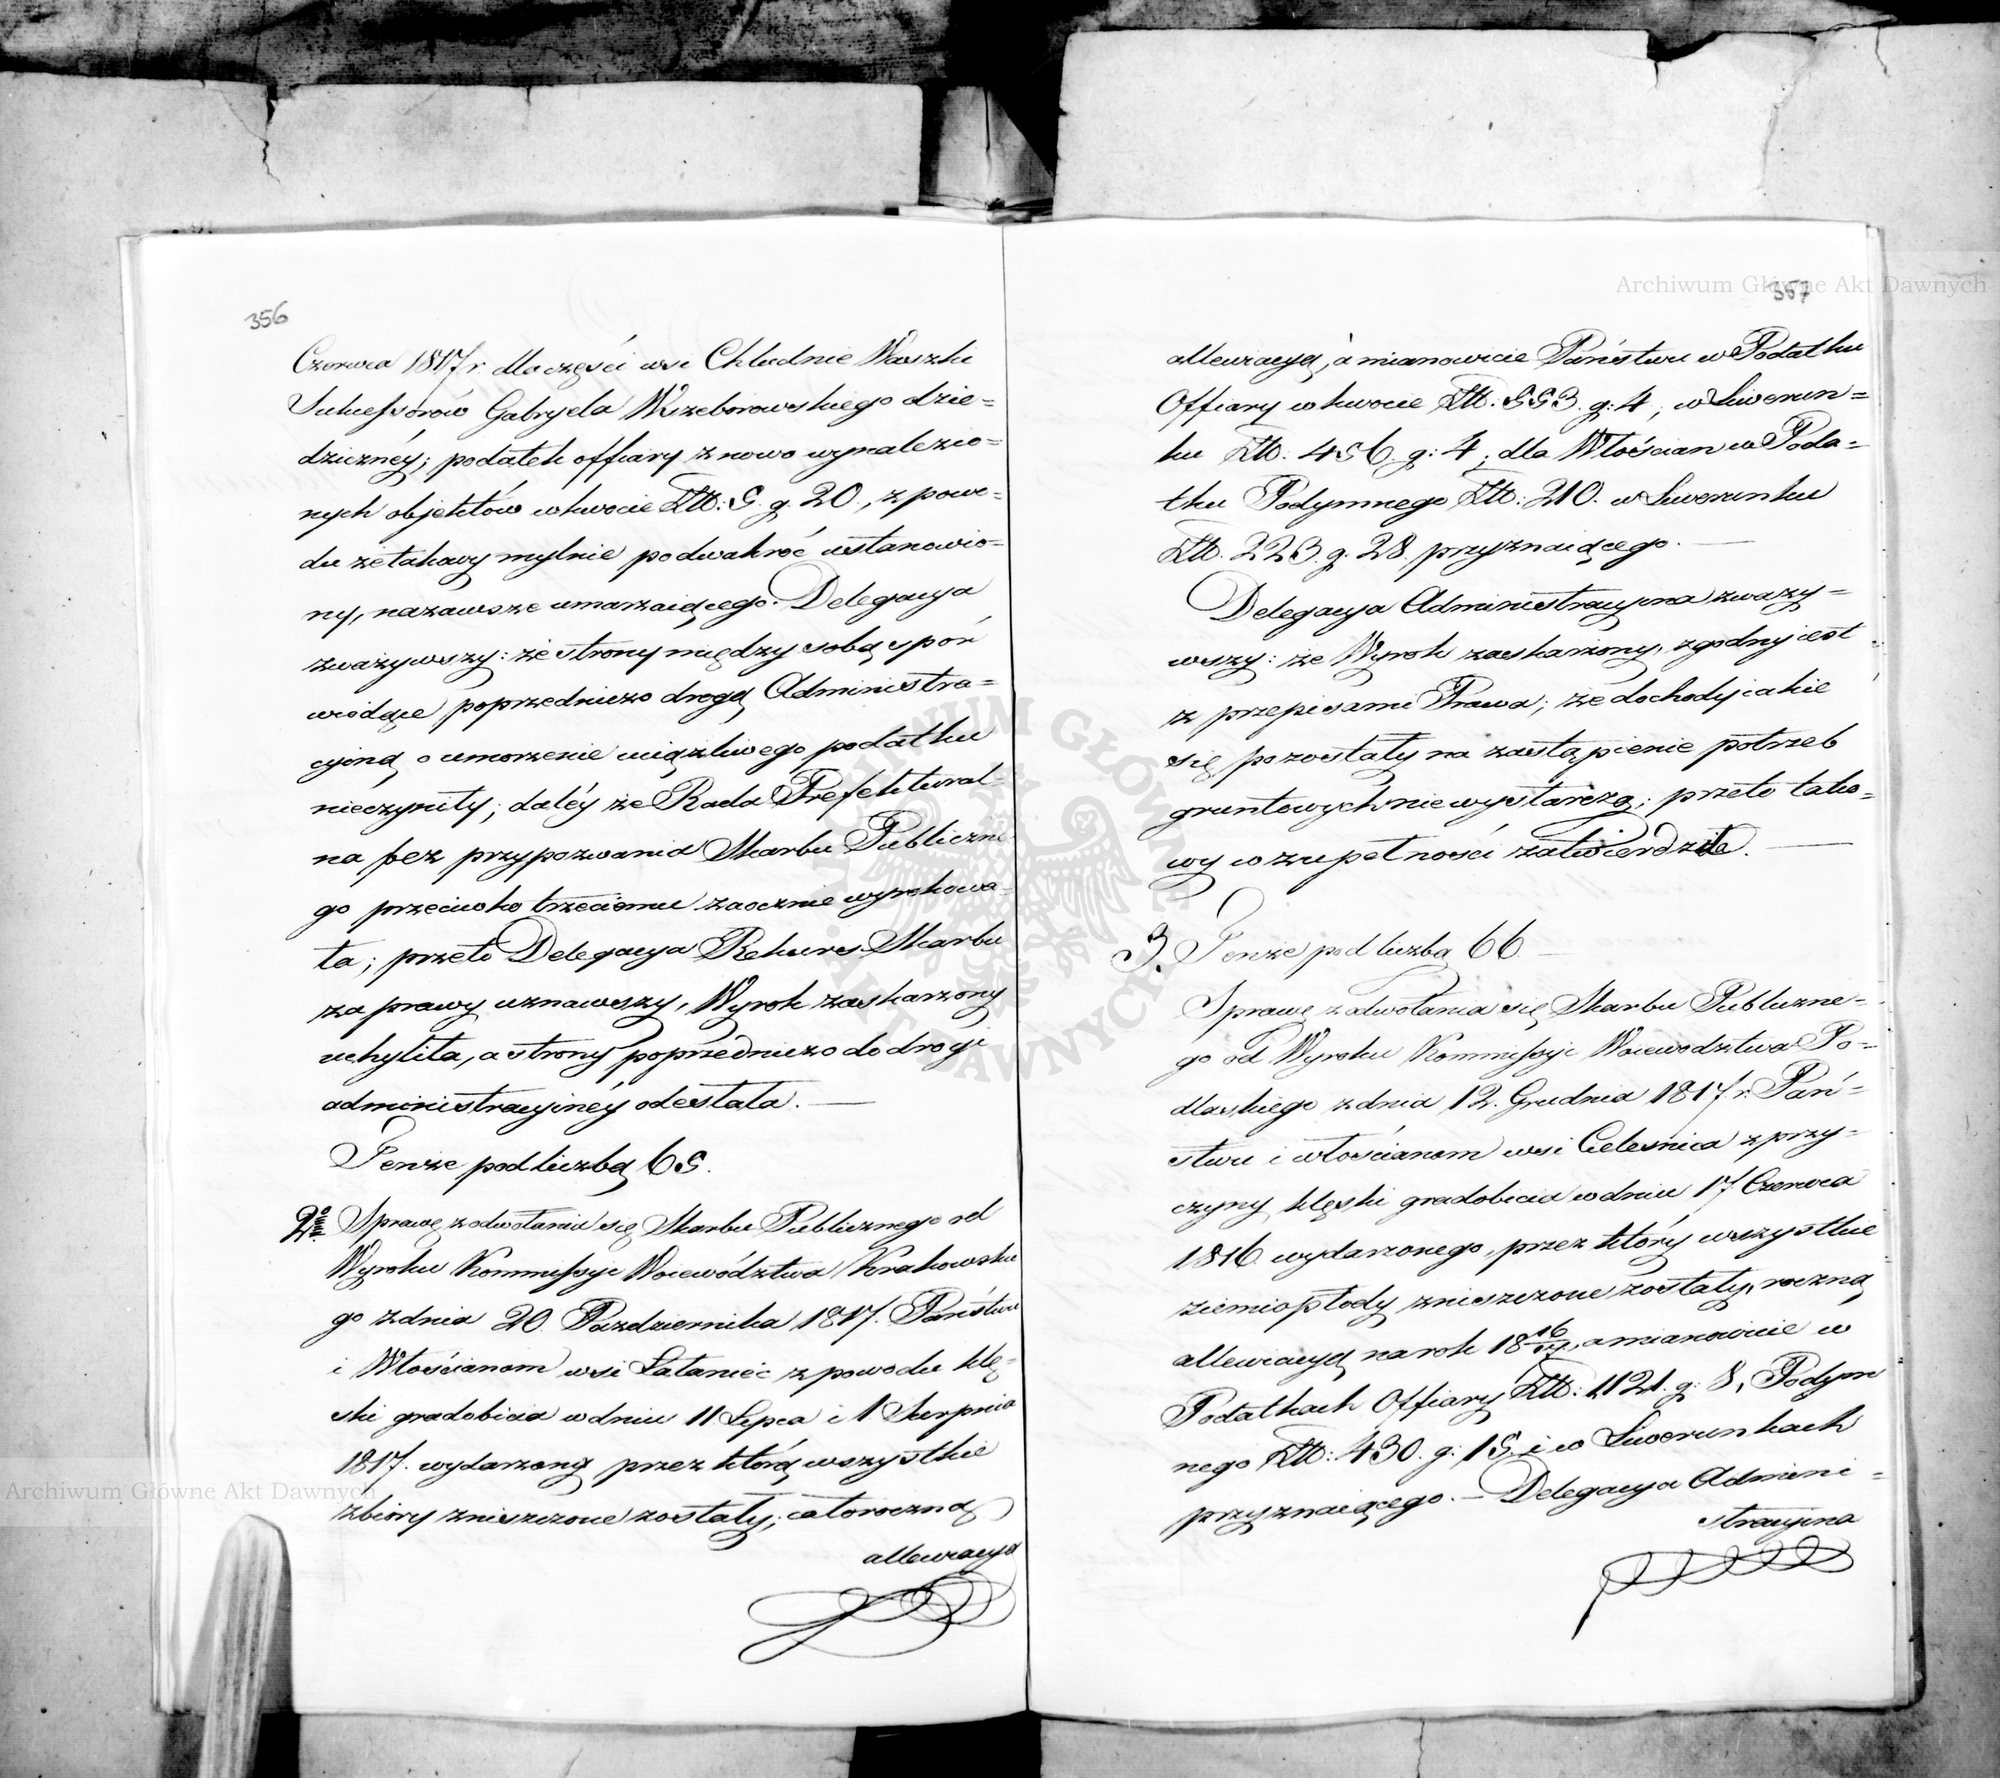 356
Czerwca 1817 r. dla części wsi Chludnie Waszki
Sukcessorów Gabryela Wszeborowskiego dzie=
dzicznéy; podatek offiary z nowo wynalezio=
nych objektów w kwocie Złt: 5. g. 20., z powo=
du że takowy mylnie podwakroć ustanowio=
ny, nazawsze umarzaiącego. Delegacya
zważywszy: że strony między sobą spór
wiodące poprzedniczo drogą Administra=
cyjną o umorzenie uciążliwego podatku
nieczyniły; daléy że Rada Prefektural=
na bez przypozwania Skarbu Publiczne
go przeciwko trzeciemu zaocznie wyrokowa=
ła; przeto Delegacya Rekurs Skarbu
za prawy uznawszy, Wyrok zaskarzony
uchyliła, a strony poprzedniczo do drogi
administracyinéy odesłała. —
Tenże pod liczbą 65.
2do Sprawę z odwołania się Skarbu Publicznego od
Wyroku Kommissyi Woiewództwa Krakowskie
go z dnia 20. Pazdziernika 1817. Państwu
i Włościanom wsi Łataniec z powodu klę=
ski gradobicia w dniu 11 Lipca i 1 Sierpnia
1817. wydarzoną przez którą wszystkie
zbiory zniszczone zostały; całoroczną
allewiacyą
357
allewiacyą, a mianowicie Państwu w Podatku
Offiary w kwocie Złt: 553. g: 4, w Liwerun=
ku Złt: 456. g: 4; dla Włościan w Poda=
tku Podymnego Złt: 210. w Liwerunku
Złt. 223. g. 28. przyznaiącego. —
Delegacya Administracyjna zważy=
wszy: że Wyrok zaskarżony, zgodny iest
z przepisami Prawa; że dochody iakie
się pozostały na zastąpienie potrzeb
gruntowych niewystarczą; przeto tako=
wy w zupełności zatwierdziła. —
3. Tenże pod liczbą 66. —
Sprawę z odwołania się Skarbu Publiczne=
go od Wyroku Kommissyi Woiewodztwa Po=
dlaskiego z dnia 12. Grudnia 1817. r. Pań=
stwu i włościanom wsi Cielesnica z przy=
czyny klęski gradobicia w dniu 17. Czerwca
1816. wydarzonego, przez który wszystkie
ziemiopłody zniszczone zostały, roczną
allewiacyą na rok 18 16/17, a mianowicie w
Podatkach Offiary Złt: 1121. g: 8, Podym
nego Złt: 430. g: 15. i w Liwerunkach
przyznaiącego. — Delegacya Admini=
stracyjna
Archiwum Główne Akt Dawnych
Archiwum Główne Akt Dawnych
ARCHIWUM GŁÓWNE AKT DAWNYCH